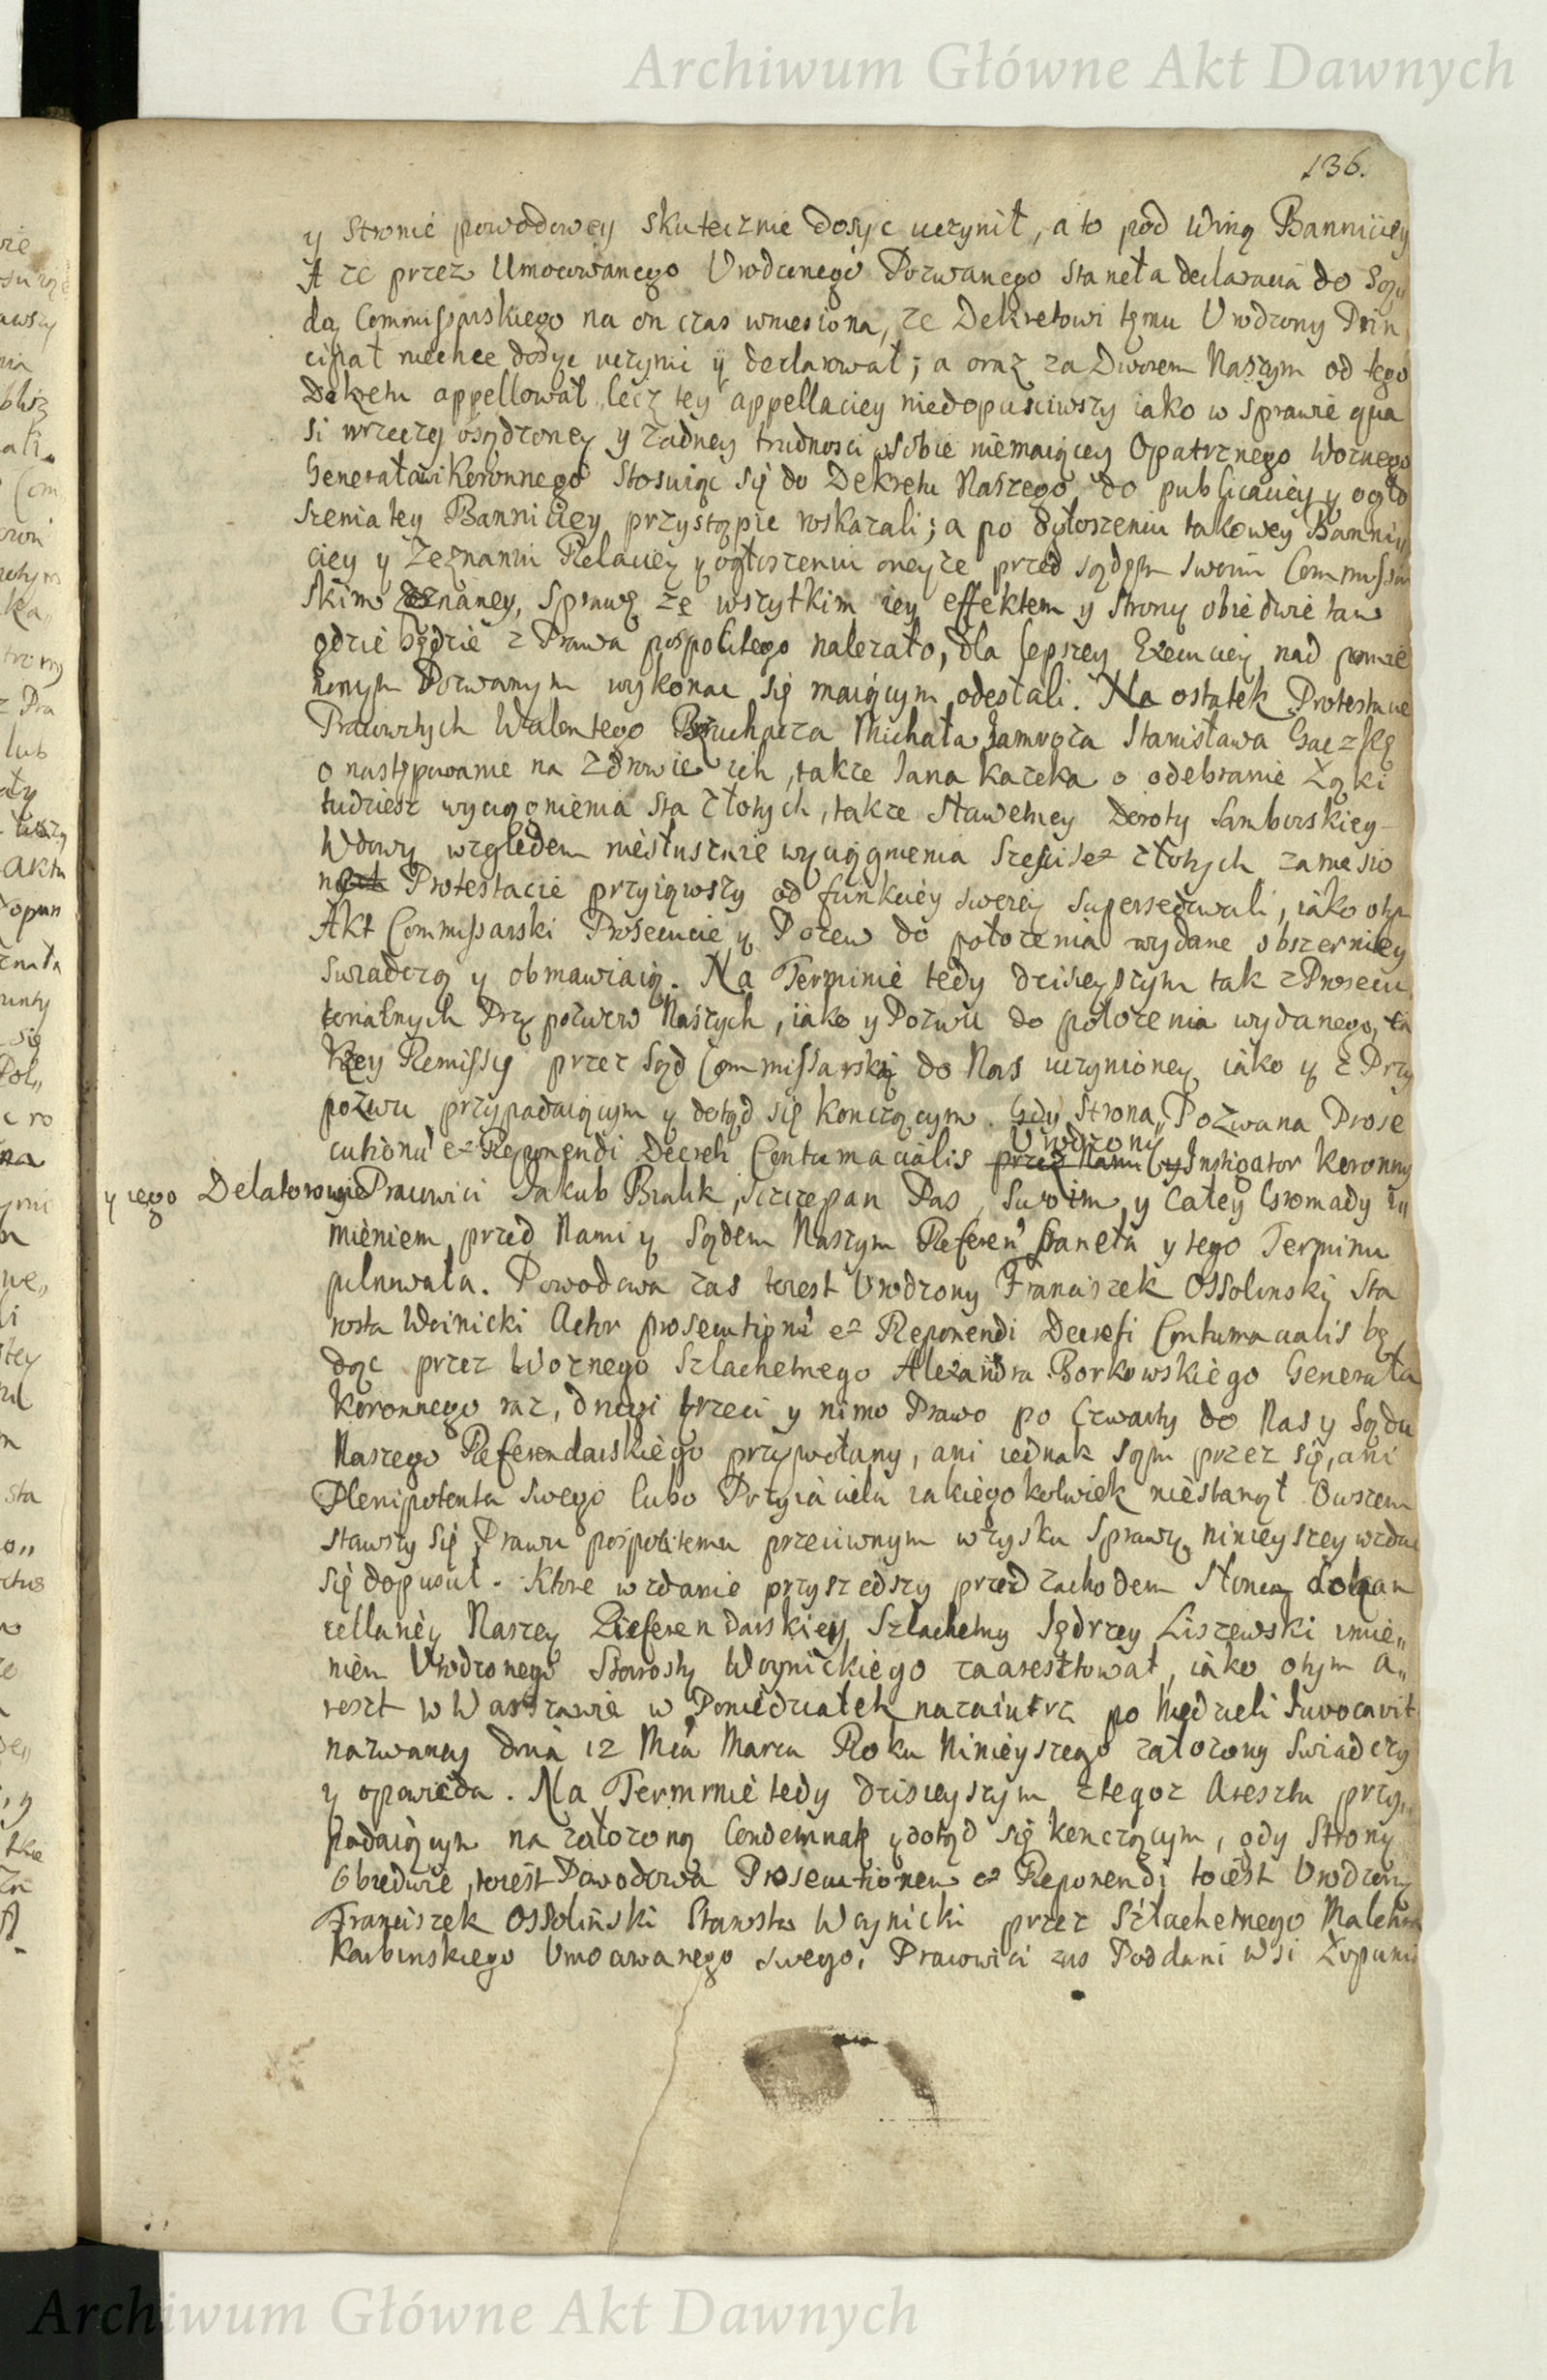 Archiwum Główne Akt Dawnych
136.
y Stronie powodowey skutecznie dosyc uczynił, a to pod winą Banniciey
A ze przez Umocowanego Urodzonego Pozwanego staneła declaracia do Są„
dą Commissarskiego na on czas wniesiona, ze Dekretowi temu Urodzony Prin
cipał niechce dosyc uczynic y declarował; a oraz za Dworem Naszym od tego
Dekretu appellował, lecz tey appellaciey niedopusciwszy iako w sprawie qua
si wrzeczy osądzoney y zadney trudnosci wsobie niemaiącey Opatrznego Woznego
Generałowi Koronnego stosuiąc się do Dekretu Naszego do publicaciey y ogło
szenia tey Banniciey przystąpic roskazali; a po ogłoszeniu takowey Banni„
ciey y Zeznaniu Relaciey y ogłoszeniu oneyze przed sądem swoim Commissar
skim zeznaney, Sprawę ze wszytkim iey effektem y strony obiedwie tam
gdzie będzie z Prawa pospolitego nalezało, dla lepszey Exekuciey nad pomie
nionym Pozwanym wykonac się maiącym odesłali. Na ostatek Protestacie
Pracowitych Walentego Bruchacza Michała Jamroza Stanisława
o nastąpowanie na zdrowie ich, takze Jana Kazeka o odebranie Łąki
tudziesz wyciągnienia sta złotych, takze sławetney Doroty Samborskiey
Wdowy względem niesłusznie wyciągnienia szesciset złotych zaniesio
ne Protestacie przyiąwszy od funkciey swoiey supersedowali, iako otym
Akt Commissarski Prosecucie y Pozew do połozenia wydane obszerniey
swiadczą y obmawiaią. Na Terminie tedy dzisieyszym tak z Prosecu
torialnych Przypozwow Naszych, iako y Pozwu do połozenia wydanego, ta
kzey Remissy przez Sąd Commissarski do Nas uczynioney iako y z Przy
pozwu przypadaiącym y dotąd się konczącym. Gdy Strona Pozwana Prose
cutionu et Reponendi Decreti Contumacialis przez Nami Urodzony Instigator Koronny
y iego Delatorowie Pracowici Jakub Bialik, Szczepan Pas, Swoim y całey Gromady i„
mieniem przed Nami y Sądem Naszym Referen: staneła y tego Terminu
pilnowała. Powodowa zas toiest Urodzony Franciszek Ossolinski Sta
rosta Woinicki Actor prosecutionu et Reponendi Decreti Contumacialis bę
dąc przez Woznego Szlachetnego Alexandra Borkowskiego Generała
Koronnego raz, drugi trzeci y nimo Prawo po czwarty do Nas y Sądu
Naszego Referendarskiego przywołany, ani iednak sąm przez się, ani
Plenipotenta swego lubo Przyiaciela iakiegokolwiek niestanął Owszem
stawszy się Prawu pospolitemu przeciwnym wzysku sprawy ninieyszey wzdac
się dopuscił. Ktore wzdanie przyszedszy przed zachodem słonca do Kan
cellariey Naszey Referendarskiey Szlachetny Jędrzey Liszewski imie„
niem Urodzonego Starosty Woynickiego zaaresztował, iako otym A„
reszt w Warszawie w Poniedziałek nazaiutrz po Niedzieli Invocavit
nazwaney dnia 12 Mca Marca Roku Ninieyszego załozony swiadczy
y opowieda. Na Terminie tedy dzisieyszym ztegoz Aresztu przy„
padaiącym na załozoną Condemnatę y dotąd się kenczącym, gdy Strony
Obiedwie, toiest Powodowa Prosecutionem et Reponendi toiest Urodzony
Franciszek Ossoliński Starosta Woynicki przez Szlachetnego
Karbinskiego Umocowanego swego, Pracowici zas Poddani Wsi Łopuni
Archiwum Główne Akt Dawnych